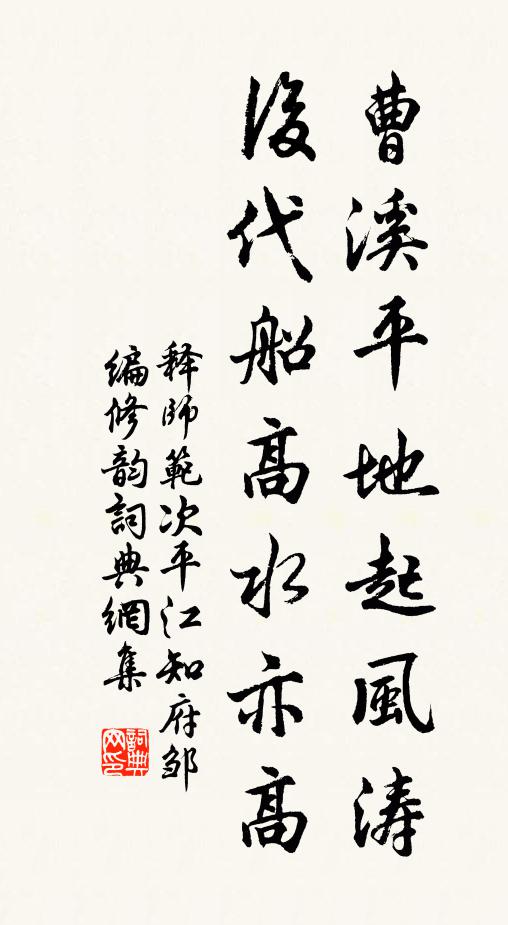 曹溪平地起風涛
後代船高水亦高
释師範次平江知府邹
编修韵詞典網集
詞典网印